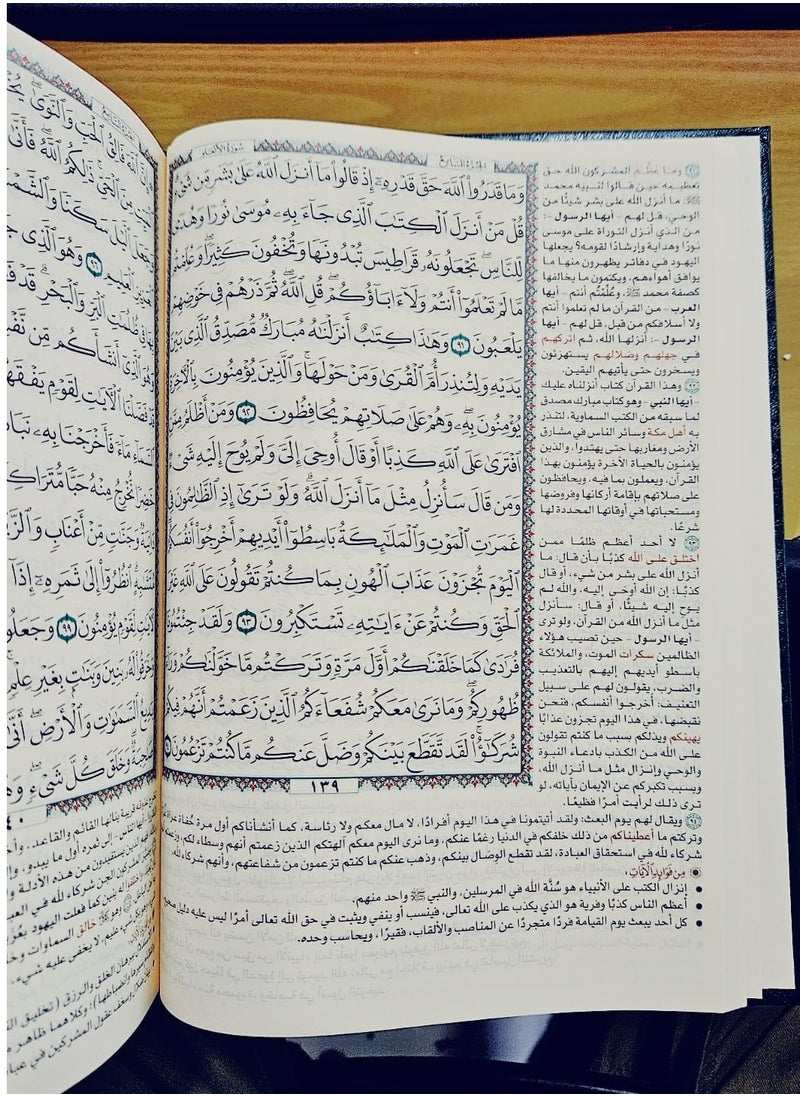 الجزء السابع
سورة الأنعام
وَمَا قَدَرُوا۟ ٱللَّهَ حَقَّ قَدْرِهِۦٓ إِذْ قَالُوا۟ مَآ أَنزَلَ ٱللَّهُ عَلَىٰ بَشَرٍ مِّن شَىْءٍ
قُلْ مَنْ أَنزَلَ ٱلْكِتَٰبَ ٱلَّذِى جَآءَ بِهِۦ مُوسَىٰ نُورًا وَهُدًى
لِّلنَّاسِ تَجْعَلُونَهُۥ قَرَاطِيسَ تُبْدُونَهَا وَتُخْفُونَ كَثِيرًا وَعُلِّمْتُم
مَّا لَمْ تَعْلَمُوٓا۟ أَنتُمْ وَلَآ ءَابَآؤُكُمْ قُلِ ٱللَّهُ ثُمَّ ذَرْهُمْ فِى خَوْضِهِمْ
يَلْعَبُونَ ٩١ وَهَٰذَا كِتَٰبٌ أَنزَلْنَٰهُ مُبَارَكٌ مُّصَدِّقُ ٱلَّذِى بَيْنَ
يَدَيْهِ وَلِتُنذِرَ أُمَّ ٱلْقُرَىٰ وَمَنْ حَوْلَهَا وَٱلَّذِينَ يُؤْمِنُونَ بِٱلْءَاخِرَةِ
يُؤْمِنُونَ بِهِۦ وَهُمْ عَلَىٰ صَلَاتِهِمْ يُحَافِظُونَ ٩٢ وَمَنْ أَظْلَمُ مِمَّنِ
ٱفْتَرَىٰ عَلَى ٱللَّهِ كَذِبًا أَوْ قَالَ أُوحِىَ إِلَىَّ وَلَمْ يُوحَ إِلَيْهِ شَىْءٌ
وَمَن قَالَ سَأُنزِلُ مِثْلَ مَآ أَنزَلَ ٱللَّهُ وَلَوْ تَرَىٰٓ إِذِ ٱلظَّٰلِمُونَ فِى
غَمَرَٰتِ ٱلْمَوْتِ وَٱلْمَلَٰٓئِكَةُ بَاسِطُوٓا۟ أَيْدِيهِمْ أَخْرِجُوٓا۟
ٱلْيَوْمَ تُجْزَوْنَ عَذَابَ ٱلْهُونِ بِمَا كُنتُمْ تَقُولُونَ عَلَى ٱللَّهِ غَيْرَ
ٱلْحَقِّ وَكُنتُمْ عَنْ ءَايَٰتِهِۦ تَسْتَكْبِرُونَ ٩٣ وَلَقَدْ جِئْتُمُونَا
فُرَٰدَىٰ كَمَا خَلَقْنَٰكُمْ أَوَّلَ مَرَّةٍ وَتَرَكْتُم مَّا خَوَّلْنَٰكُمْ
ظُهُورِكُمْ وَمَا نَرَىٰ مَعَكُمْ شُفَعَآءَكُمُ ٱلَّذِينَ زَعَمْتُمْ أَنَّهُمْ فِيكُمْ
شُرَكَٰٓؤُا۟ لَقَد تَّقَطَّعَ بَيْنَكُمْ وَضَلَّ عَنكُم مَّا كُنتُمْ تَزْعُمُونَ
١٣٩
وما عظّم المشركون الله حق
تعظيمه حين قالوا لنبيه محمد
ﷺ: ما أنزل الله على بشر شيئًا من
الوحي، قل لهم - أيها الرسول -:
من الذي أنزل التوراة على موسى
نورًا وهداية وإرشادًا لقومه؟ يجعلها
اليهود في دفاتر يظهرون منها ما
يوافق أهواءهم، ويكتمون ما يخالفها
كصفة محمد ﷺ، وعُلِّمْتُم أنتم - أيها
العرب - من القرآن ما لم تعلموا أنتم
ولا أسلافكم من قبل، قل لهم - أيها
الرسول -: أنزلها الله، ثم اتركهم
في جهلهم وضلالهم يستهزئون
ويسخرون حتى يأتيهم اليقين.
٩٢ وهذا القرآن كتاب أنزلناه عليك
- أيها النبي - وهو كتاب مبارك مصدق
لما سبقه من الكتب السماوية، لتنذر
به أهل مكة وسائر الناس في مشارق
الأرض ومغاربها حتى يهتدوا، والذين
يؤمنون بالحياة الآخرة يؤمنون بهذا
القرآن، ويعملون بما فيه، ويحافظون
على صلاتهم بإقامة أركانها وفروضها
ومستحباتها في أوقاتها المحددة لها
شرعًا.
٩٣ لا أحد أعظم ظلمًا ممن
اختلق على الله كذبًا بأن قال: ما
أنزل الله على بشر من شيء، أو قال
كذبًا: إن الله أوحى إليه، والله لم
يوح إليه شيئًا، أو قال: سأنزل
مثل ما أنزل الله من القرآن، ولو ترى
- أيها الرسول - حين تصيب هؤلاء
الظالمين سكرات الموت، والملائكة
باسطو أيديهم إليهم بالتعذيب
والضرب، يقولون لهم على سبيل
التعنيف: أخرجوا أنفسكم، فنحن
نقبضها، في هذا اليوم تجزون عذابًا
يهينكم ويذلكم بسبب ما كنتم تقولون
على الله من الكذب بادعاء النبوة
والوحي وإنزال مثل ما أنزل الله،
وبسبب تكبركم عن الإيمان بآياته، لو
ترى ذلك لرأيت أمرًا فظيعًا.
٩٤ ويقال لهم يوم البعث: ولقد أتيتمونا في هذا اليوم أفرادًا، لا مال معكم ولا رئاسة، كما أنشأناكم أول مرة حُفاة عراة
وتركتم ما أعطيناكم من ذلك خلفكم في الدنيا رغمًا عنكم، وما نرى اليوم معكم آلهتكم الذين زعمتم أنهم وسطاء لكم،
شركاء لله في استحقاق العبادة، لقد تقطع الوصَال بينكم، وذهب عنكم ما كنتم تزعمون من شفاعتهم، وأنهم شركاء لله.
مِن فَوَائِدِ الآيَاتِ
• إنزال الكتب على الأنبياء هو سُنَّة الله في المرسلين، والنبي ﷺ واحد منهم.
• أعظم الناس كذبًا وفرية هو الذي يكذب على الله تعالى، فينسب أو ينفي ويثبت في حق الله تعالى أمرًا ليس عليه دليل صحيح
• كل أحد يبعث يوم القيامة فردًا متجردًا عن المناصب والألقاب، فقيرًا، ويحاسب وحده.
إِنَّ ٱللَّهَ فَالِقُ ٱلْحَبِّ وَٱلنَّوَىٰ
ٱلْمَيِّتِ مِنَ ٱلْحَىِّ ذَٰلِكُمُ ٱللَّهُ
وَجَعَلَ ٱلَّيْلَ سَكَنًا وَٱلشَّمْسَ
ٱلْعَلِيمِ ٩٦ وَهُوَ ٱلَّذِى
بِهَا فِى ظُلُمَٰتِ ٱلْبَرِّ وَٱلْبَحْرِ قَدْ
وَهُوَ ٱلَّذِىٓ أَنشَأَكُم مِّن
قَدْ فَصَّلْنَا ٱلْءَايَٰتِ لِقَوْمٍ يَفْقَهُونَ
ٱلسَّمَآءِ مَآءً فَأَخْرَجْنَا بِهِۦ
خَضِرًا نُّخْرِجُ مِنْهُ حَبًّا مُّتَرَاكِبًا
دَانِيَةٌ وَجَنَّٰتٍ مِّنْ أَعْنَابٍ
ٱنظُرُوٓا۟ إِلَىٰ ثَمَرِهِۦٓ إِذَآ
لِّقَوْمٍ يُؤْمِنُونَ ٩٩ وَجَعَلُوا۟
لَهُۥ بَنِينَ وَبَنَٰتٍۭ بِغَيْرِ عِلْمٍ
بَدِيعُ ٱلسَّمَٰوَٰتِ وَٱلْأَرْضِ أَنَّىٰ
وَخَلَقَ كُلَّ شَىْءٍ